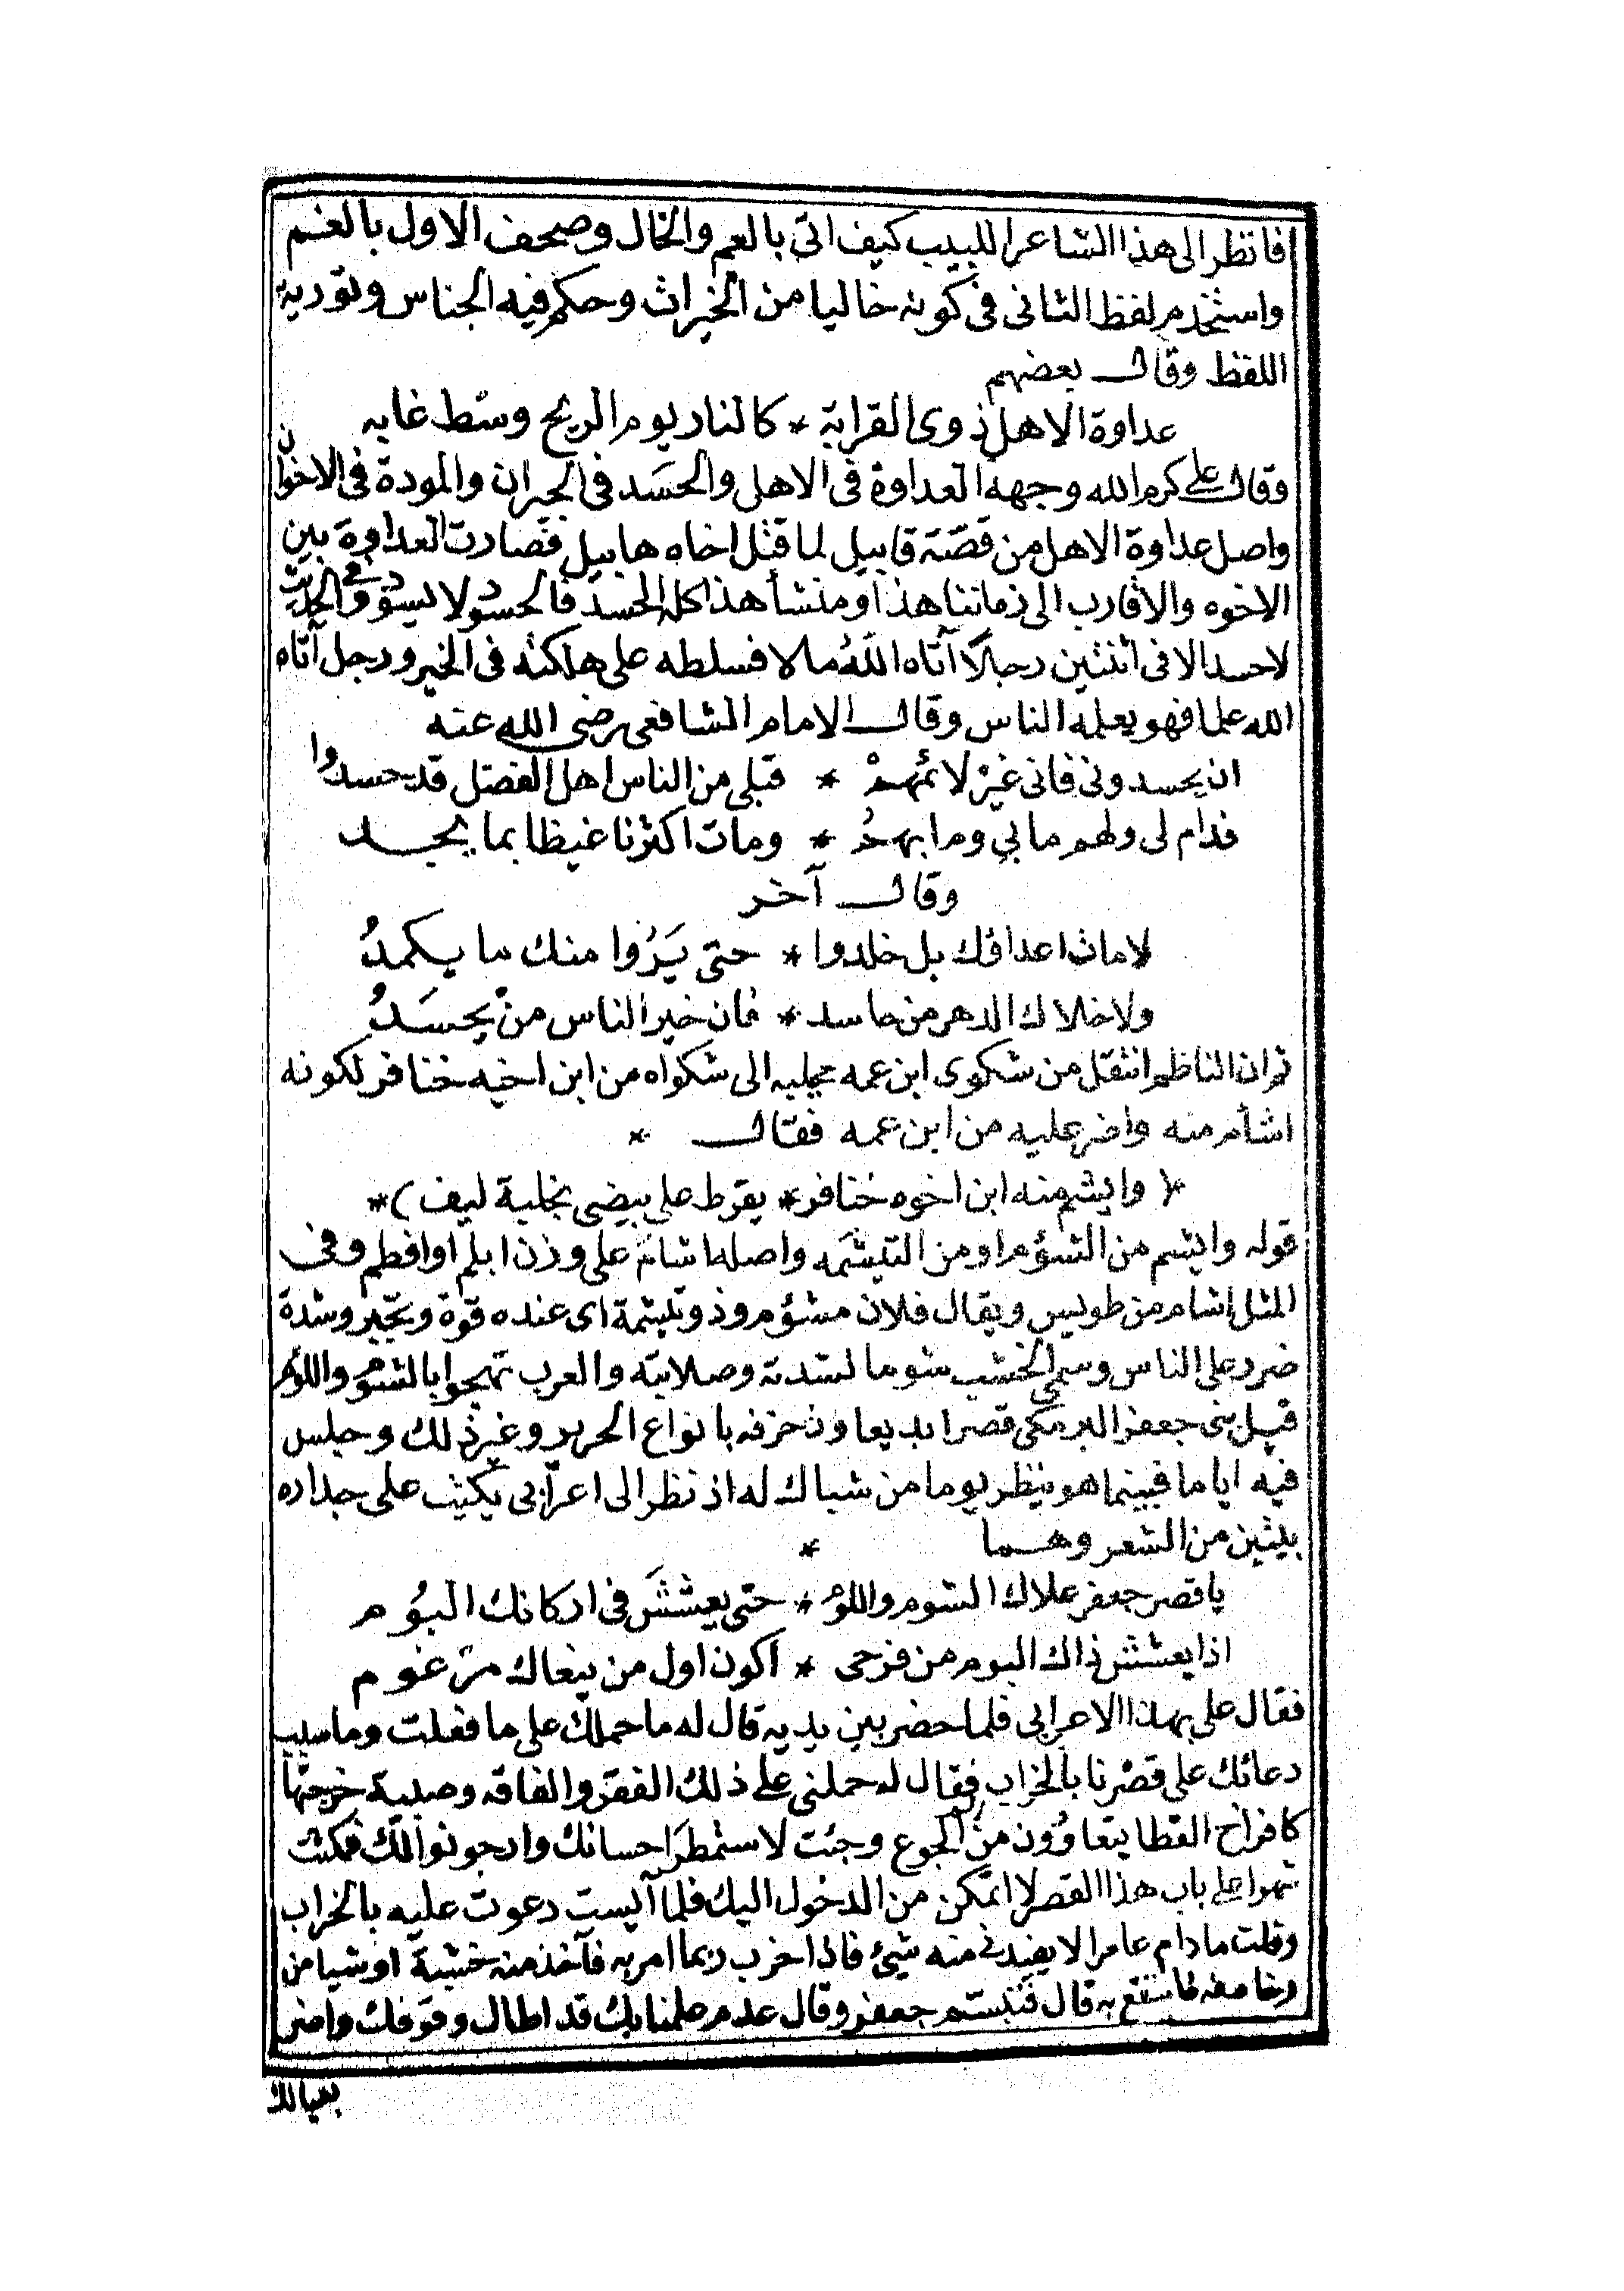 فانظر الى هذا الشاعر اللبيب كيف اتى بالعم والخال وصحف الاول بالغم
واستخدم لفظ الثانى فى كونه خاليا من الخيرات وحكم فيه الجناس وتورية
اللفظ وقال بعضهم
عداوة الاهل ذوى القرابة * كالنار يوم الريح وسط غابه
وقال على كرم الله وجهه العداوة فى الاهل والحسَد فى الجيران والمودة فى الاخوان
واصل عداوة الاهل من قصّة قابيل لما قتل اخاه هابيل فصارت العداوة بين
الاخوه والاقارب الى زماننا هذا ومنشأ هذا كله الحسد فالحسود لا يسود وفى الحديث
لا حسد الا فى اثنتين رجلاً آتاه اللهُ مالا فسلطه على هلكته فى الخير ورجل آتاه
الله علما فهو يعلمه الناس وقال الامام الشافعى رضى الله عنه
ان يحسدونى فانى غيرُ لائمهمْ * قبلى من الناس اهل الفضل قد حسدوا
فدام لى ولهم ما بي وما بهمُ * ومات اكثرنا غيظا بما يجد
وقال آخر
لا مات اعداؤك بل خلدوا * حتى يَرَوا منك ما يكمدُ
ولا خلاك الدهر من حاسد * فان خير الناس من يحسَدُ
ثم ان الناظم انتقل من شكوى ابن عمه محيلبه الى شكواه من ابن اخيه خنافر لكونه
اشأم منه واضر عليه من ابن عمه فقال *
* (وايشم منه ابن اخوه خنافر * يقرط على بيضى بخلبة ليف) *
قوله وايشم من الشؤم او من التيشمه واصله اشام على وزن ابلم او افطم وفى
المثل اشام من طويس ويقال فلان مشؤم وذو تيشمة اى عنده قوة وتجبر وشدة
ضرر على الناس وسمى الخشب شوما لشدته وصلابته والعرب تهجوا بالشوم واللؤم
قيل بنى جعفر البرمكى قصرا بديعا وزخرفه بانواع الحرير وغير ذلك وجلس
فيه اياما فبينما هو ينظر يوما من شباك له اذ نظر الى اعرابي يكتب على جداره
بيتين من الشعر وهما *
يا قصر جعفر علاك الشوم واللوم * حتى يعششَ فى اركانك البُوم
اذا يعشش ذاك البوم من فرحى * اكون اول من ينعاك مرغوم
فقال على بهذا الاعرابى فلما حضر بين يديه قال له ما حملك على ما فعلت وما سبب
دعائك على قصْرنا بالخراب فقال له حملنى على ذلك الفقر والفاقه وصبية خرجتها
كافراخ القطا يتعاوُون من الم الجوع وجئت لاستمطر احسانك وارجو نوالك فمكثت
شهرا على باب هذا القصر لا اتمكن من الدخول اليك فلما آيست دعوت عليه بالخراب
وقلت ما دام عامرا لا يفيدنى منه شيئ فاذا خرب ربما امر به فآخذ منه خشبة او شيا من
رخامه فانتفع به قال فتبسّم جعفر وقال عدم علمنا بك قد اطال وقوفك واضر
بعيالك